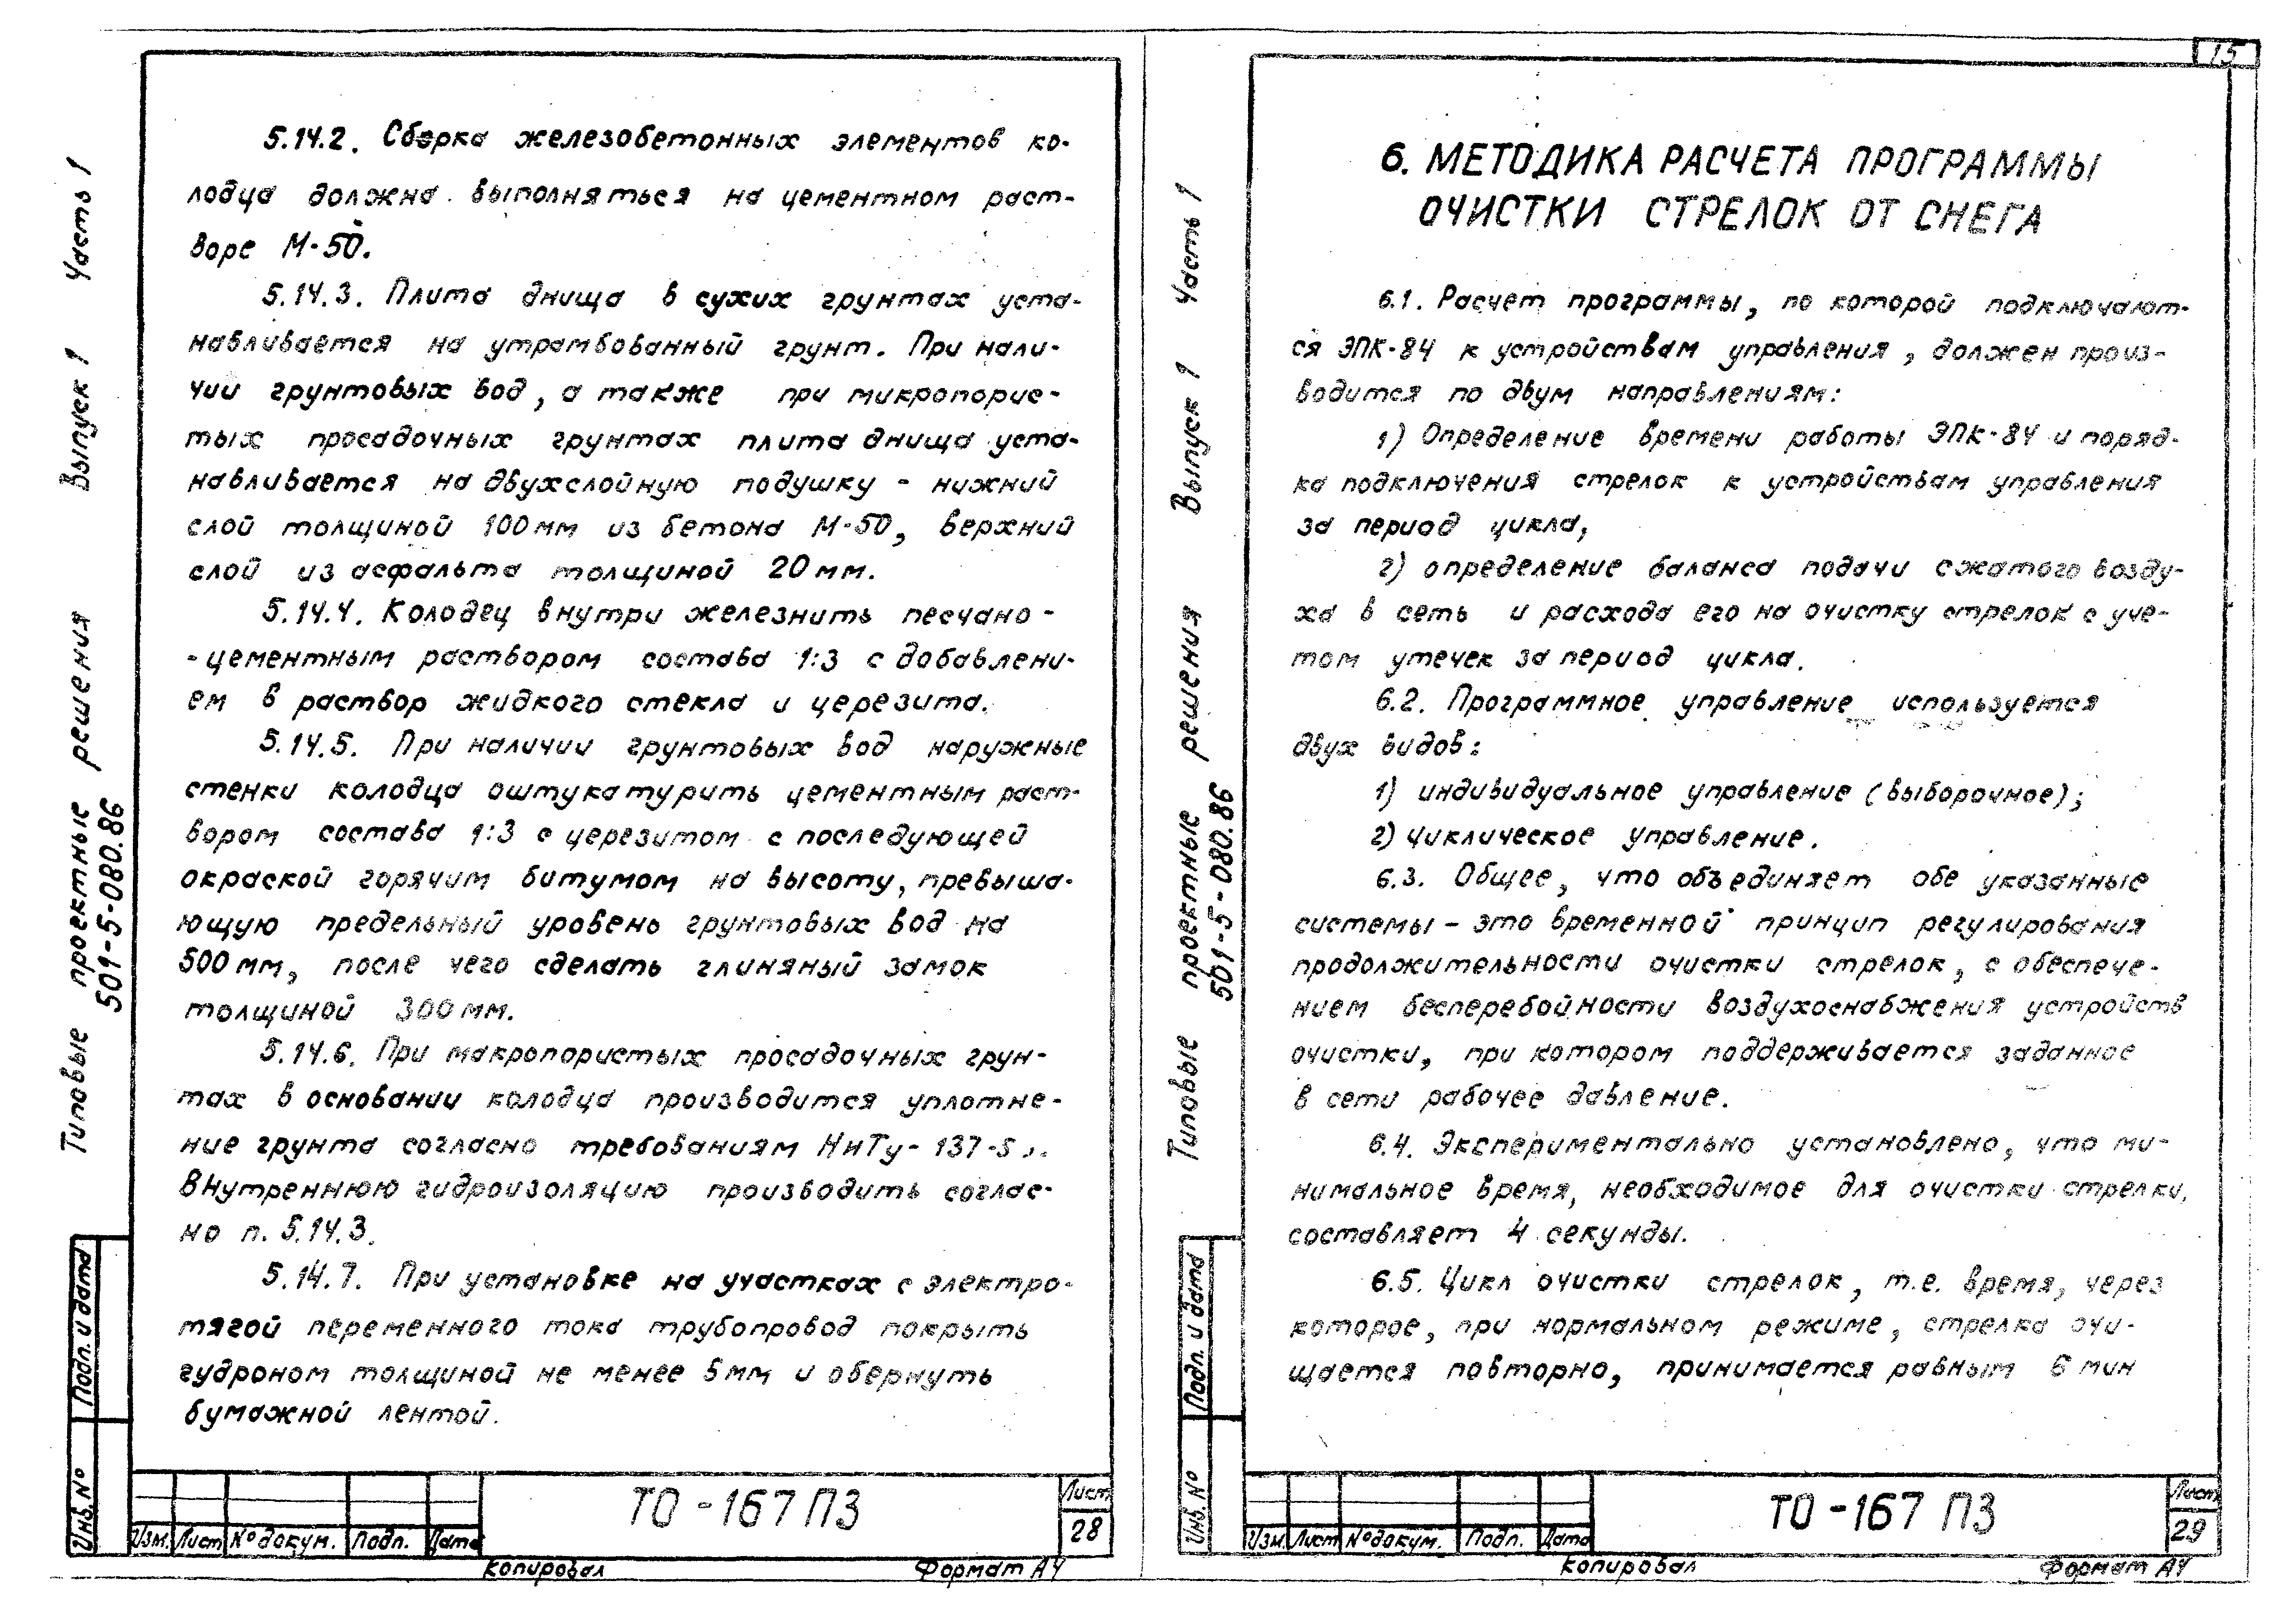 5.14.2. Сборка железобетонных элементов ко-
лодца должна выполняться на цементном раст-
воре М-50.
5.14.3. Плита днища в сухих грунтах уста-
навливается на утрамбованный грунт. При нали-
чии грунтовых вод, а также при микропорис-
тых просадочных грунтах плита днища уста-
навливается на двухслойную подушку - нижний
слой толщиной 100 мм из бетона М-50, верхний
слой из асфальта толщиной 20 мм.
5.14.4. Колодец внутри железнить песчано-
-цементным раствором состава 1:3 с добавлени-
ем в раствор жидкого стекла и церезита.
5.14.5. При наличии грунтовых вод наружные
стенки колодца оштукатурить цементным раст-
вором состава 1:3 с церезитом с последующей
окраской горячим битумом на высоту, превыша-
ющую предельный уровень грунтовых вод на
500 мм, после чего сделать глиняный замок
толщиной 300 мм.
5.14.6. При макропористых просадочных грун-
тах в основании колодца производится уплотне-
ние грунта согласно требованиям НиТу-137-5
Внутреннюю гидроизоляцию производить соглас-
но п. 5.14.3.
5.14.7. При установке на участках с электро-
тягой переменного тока трубопровод покрыть
гудроном толщиной не менее 5 мм и обернуть
бумажной лентой.
Типовые проектные решения Выпуск 1 Часть 1
501-5-080.86
Подп. и дата
Инв. №
Изм. Лист № докум. Подп. Дата
ТО-167 ПЗ
Лист
28
Копировал Формат А4
15
6. МЕТОДИКА РАСЧЕТА ПРОГРАММЫ
ОЧИСТКИ СТРЕЛОК ОТ СНЕГА
6.1. Расчет программы, по которой подключают-
ся ЭПК-84 к устройствам управления, должен произ-
водится по двум направлениям:
1) Определение времени работы ЭПК-84 и поряд-
ка подключения стрелок к устройствам управления
за период цикла,
2) определение баланса подачи сжатого возду-
ха в сеть и расхода его на очистку стрелок с уче-
том утечек за период цикла.
6.2. Программное управление используется
двух видов:
1) индивидуальное управление (выборочное);
2) циклическое управление.
6.3. Общее, что объединяет обе указанные
системы - это временной принцип регулирования
продолжительности очистки стрелок, с обеспече-
нием бесперебойности воздухоснабжения устройств
очистки, при котором поддерживается заданное
в сети рабочее давление.
6.4. Экспериментально установлено, что ми-
нимальное время, необходимое для очистки стрелки,
составляет 4 секунды.
6.5. Цикл очистки стрелок, т.е. время, через
которое, при нормальном режиме, стрелка очи-
щается повторно, принимается равным 6 мин
Типовые проектные решения Выпуск 1 Часть 1
501-5-080.86
Подп. и дата
Инв. №
Изм. Лист № докум. Подп. Дата
ТО-167 ПЗ
Лист
29
Копировал Формат А4